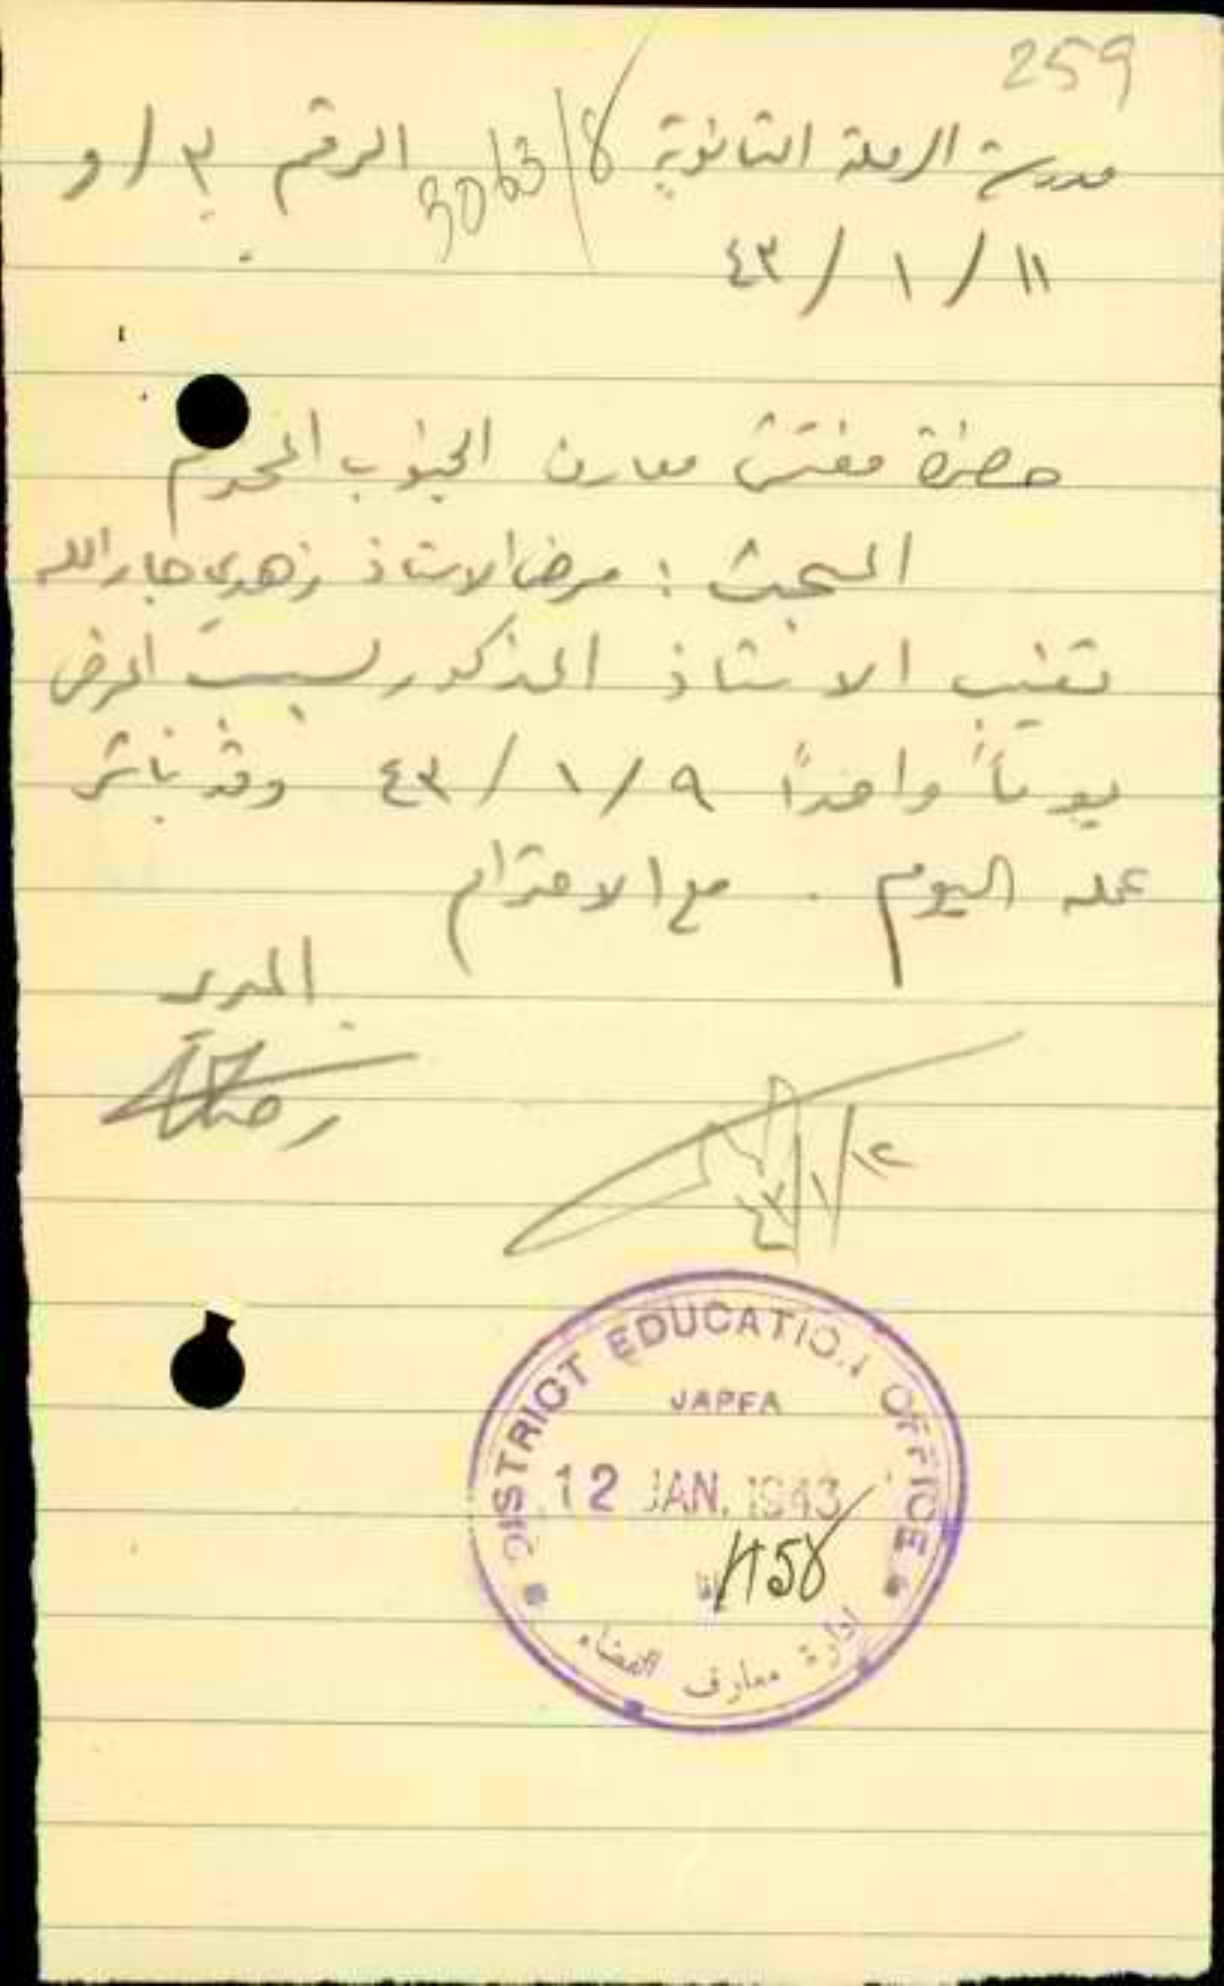 259
مدرسة الرملة الثانوية 3063/8 الرقم ٣/و
١١/١/٤٣
حضرة مفتش معارف الجنوب المحترم
المبحث : مرض الاستاذ زهدي جار الله
تغيب الاستاذ المذكور بسبب المرض
يوماً واحداً ٩/١/٤٣ وقد باشر
عمله اليوم . مع الاحترام
المدير
١٢/١/٤٣
DISTRICT EDUCATION OFFICE
JAFFA
12 JAN. 1943
ادارة معارف القضاء